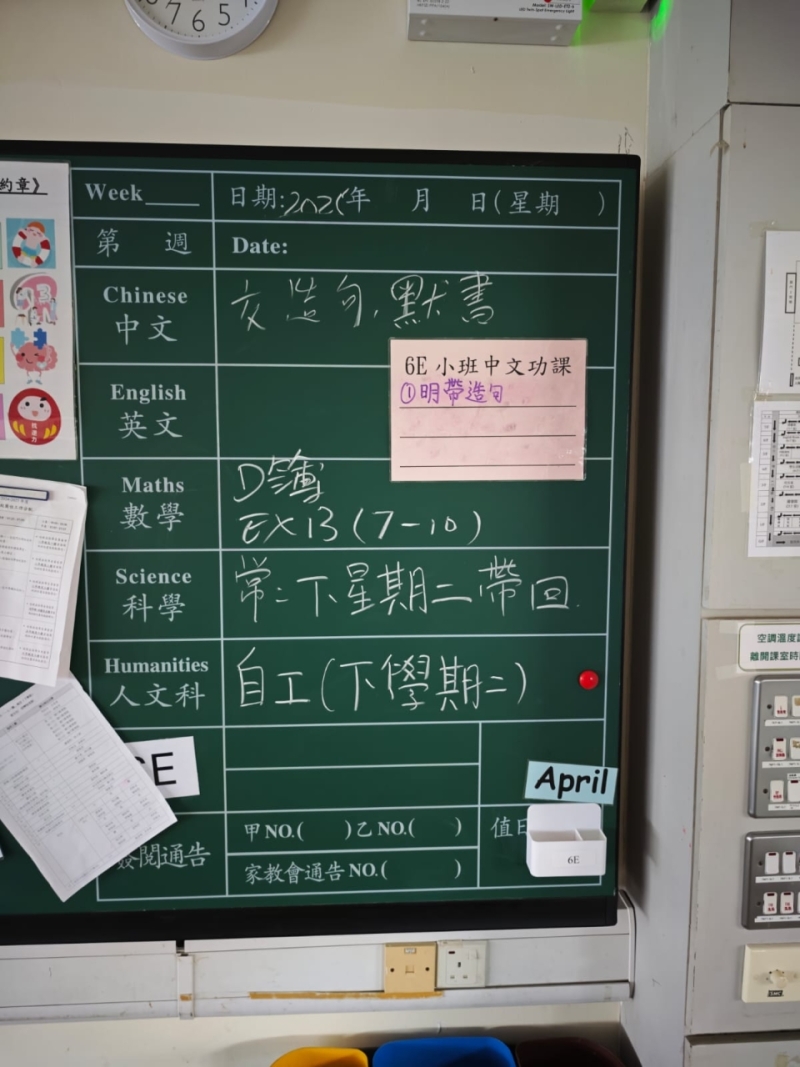 約章》
Week
日期: 年 月 日(星期 )
第 週
Date:
Chinese
中文
交造句,默書
6E 小班中文功課
①明帶造句
English
英文
Maths
數學
D簿
EX13(7-10)
Science
科學
常:下星期二帶回
Humanities
人文科
自工(下學期二)
April
甲NO.( )乙NO.( )
值日
簽閱通告
家教會通告NO.( )
6E
空調溫度
離開課室時
7 6 5